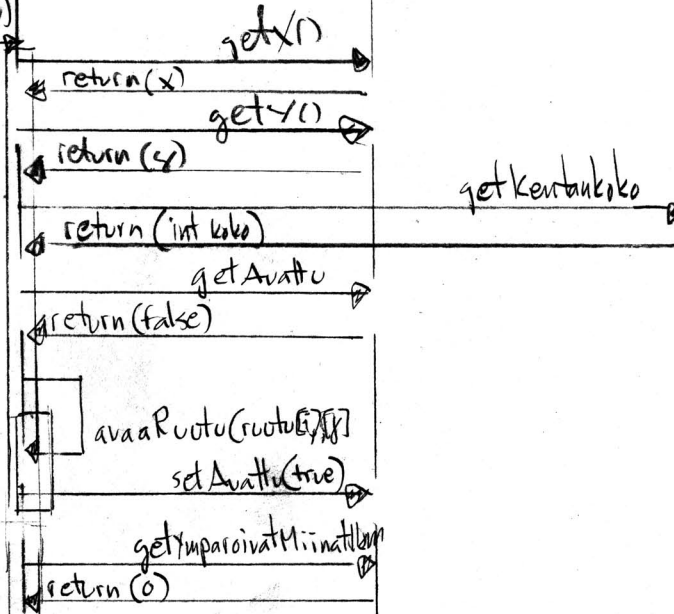 getX()
return(x)
getY()
return(y)
getKentankoko
return(int koko)
getAvattu
return(false)
avaaRuutu(ruutu[i][j]
setAvattu(true)
getYmparoivatMiinatlkm
return(0)